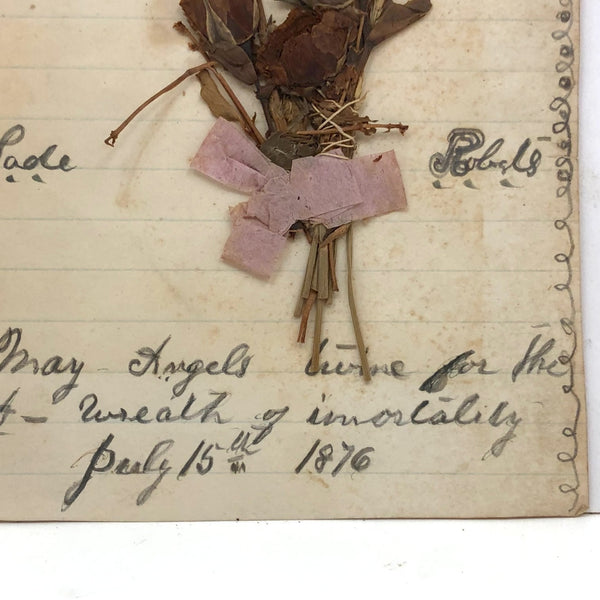 Robets
May Angels twine for the
wreath of imortality
July 15th 1876